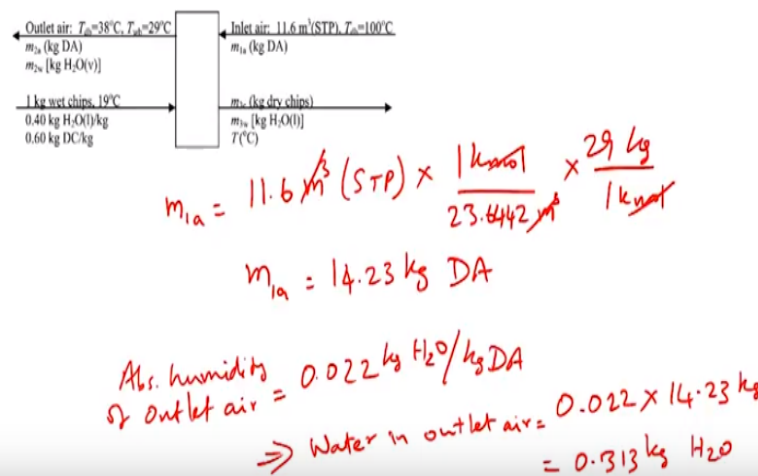 Outlet air: Tdb=38°C, Twb=29°C
m2a (kg DA)
m2w [kg H2O(v)]
Inlet air: 11.6 m³(STP), Tdb=100°C
m1a (kg DA)
1 kg wet chips, 19°C
0.40 kg H2O(l)/kg
0.60 kg DC/kg
m3c (kg dry chips)
m3w [kg H2O(l)]
T(°C)
m1a = 11.6 m³ (STP) × 1 kmol / 23.6442 m³ × 29 kg / 1 kmol
m1a = 14.23 kg DA
Abs. humidity of outlet air = 0.022 kg H2O/kg DA
⇒ Water in outlet air = 0.022 × 14.23 kg
= 0.313 kg H2O